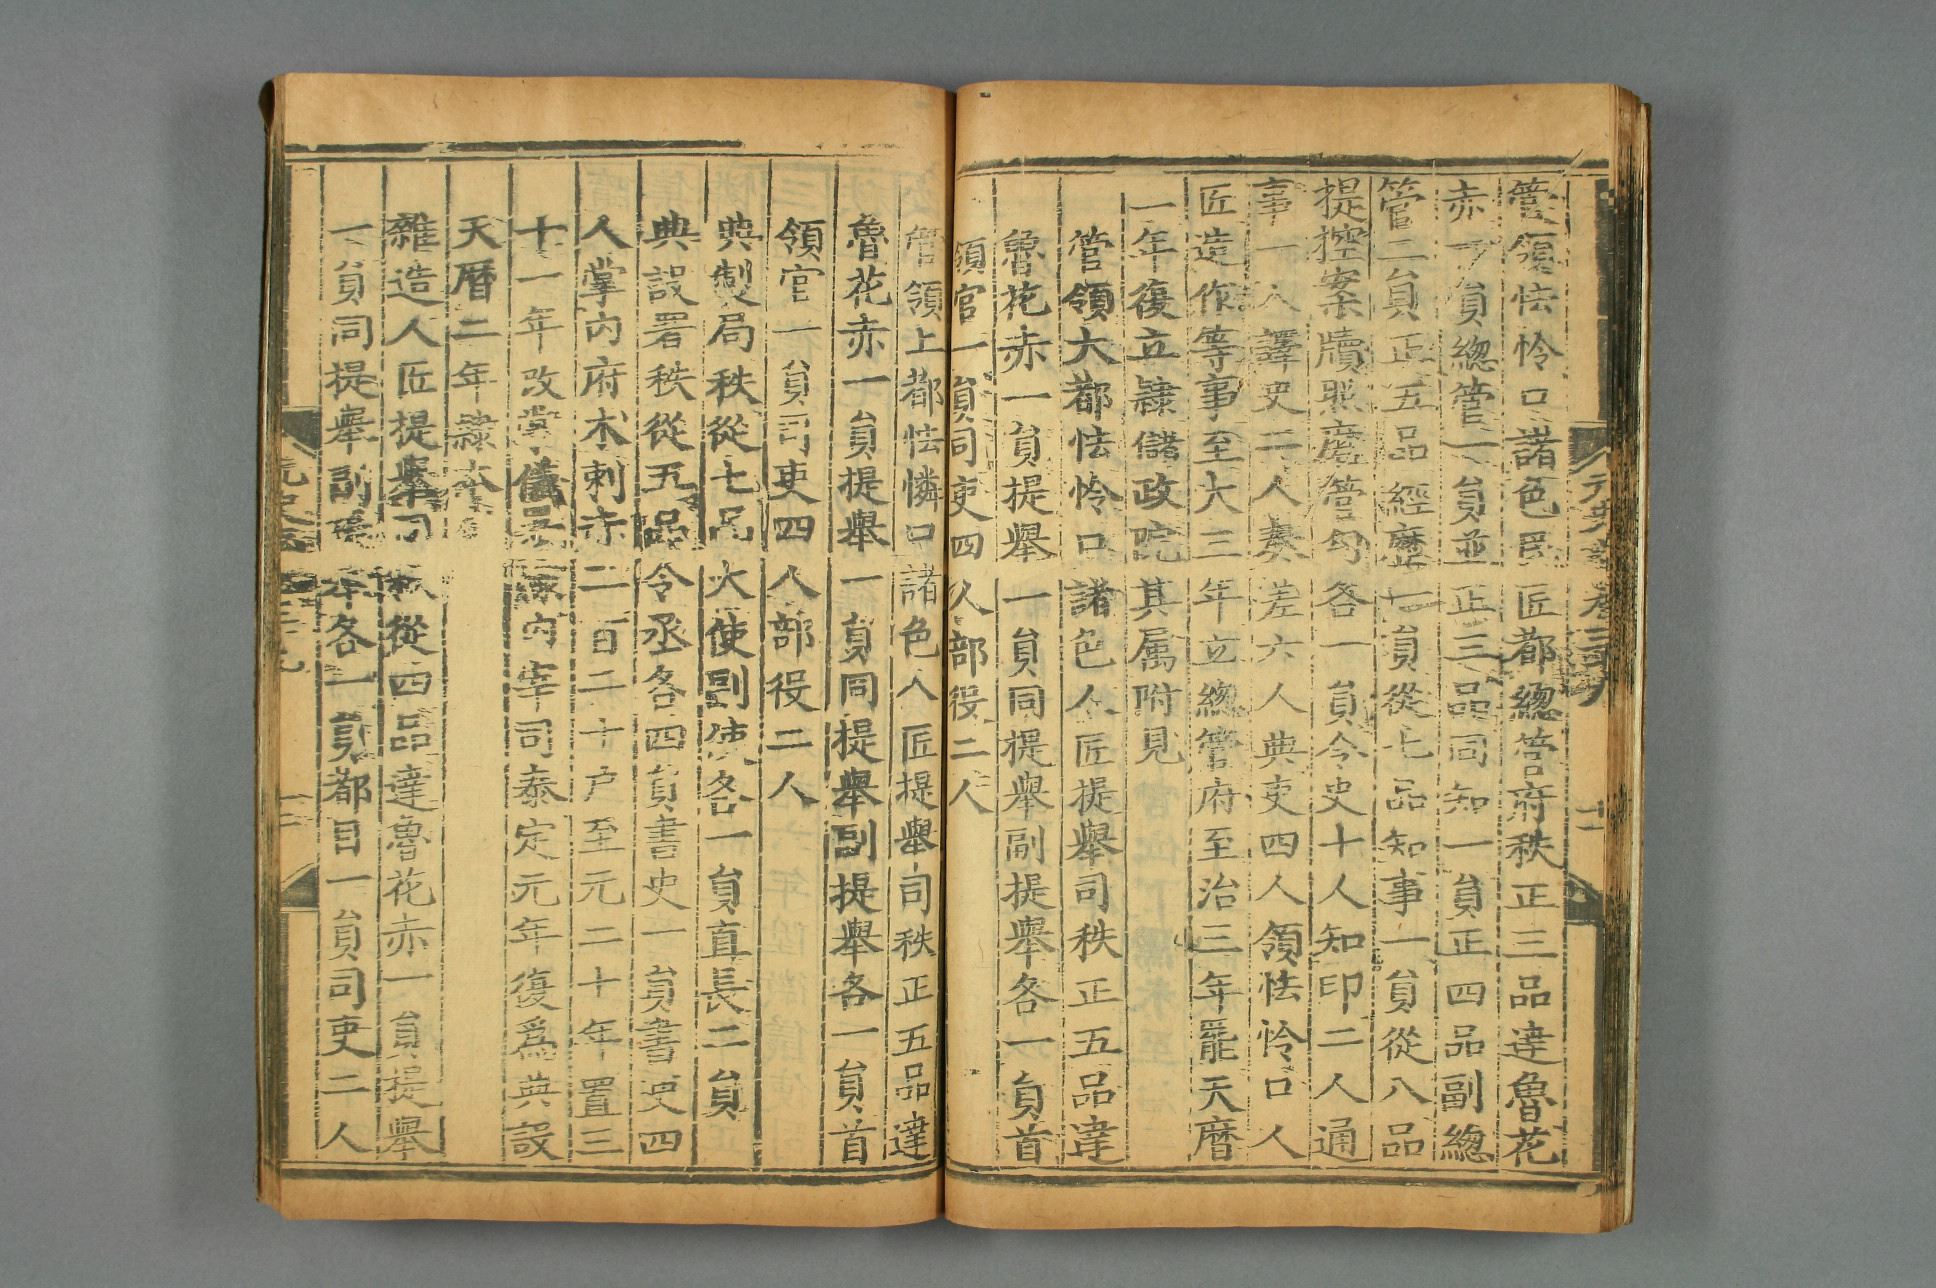 管領怯怜口諸色民匠都總管府秩正三品達魯花
赤一員總管一員並正三品同知一員正四品副總
管二員正五品經歷一員從七品知事一員從八品
提控案牘照磨管勾各一員令史十人知印二人通
事一人譯史二人奏差六人典吏四人領怯怜口人
匠造作等事至大三年立總管府至治三年罷天曆
一年復立隸儲政院其属附見
管領大都怯怜口諸色人匠提舉司秩正五品達
魯花赤一員提舉一員同提舉副提舉各一員首
領官一員司吏四人部役二人
管領上都怯憐口諸色人匠提舉司秩正五品達
魯花赤一員提舉一員同提舉副提舉各一員首
領官一員司吏四人部役二人
典製局秩從七品大使副使各一員直長二員
典設署秩從五品令丞各四員書史一員書吏四
人掌內府木剌赤二百二十户至元二十年置三
十一年改掌儀署隸內宰司泰定元年復爲典設
天曆二年隸本
雜造人匠提舉司秩從四品達魯花赤一員提舉
一員同提舉副提各一員都目一員司吏二人